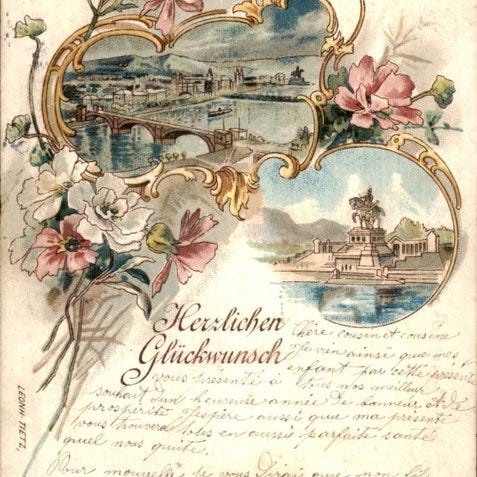 Herzlichen
Glückwunsch
Chère cousin et cousine
Je vien ainsi que mes
enfant par cette présent
vous présenté à tous nos meilleur
souhait d'un heureuse année de bonneur et de
prospérité J'espère aussi que ma présenté
vous trouvera tous en aussi parfaite santé
quel nous quite.
Pour nouvelle je vous Dirai que mon fils
LEONH. TIETZ.